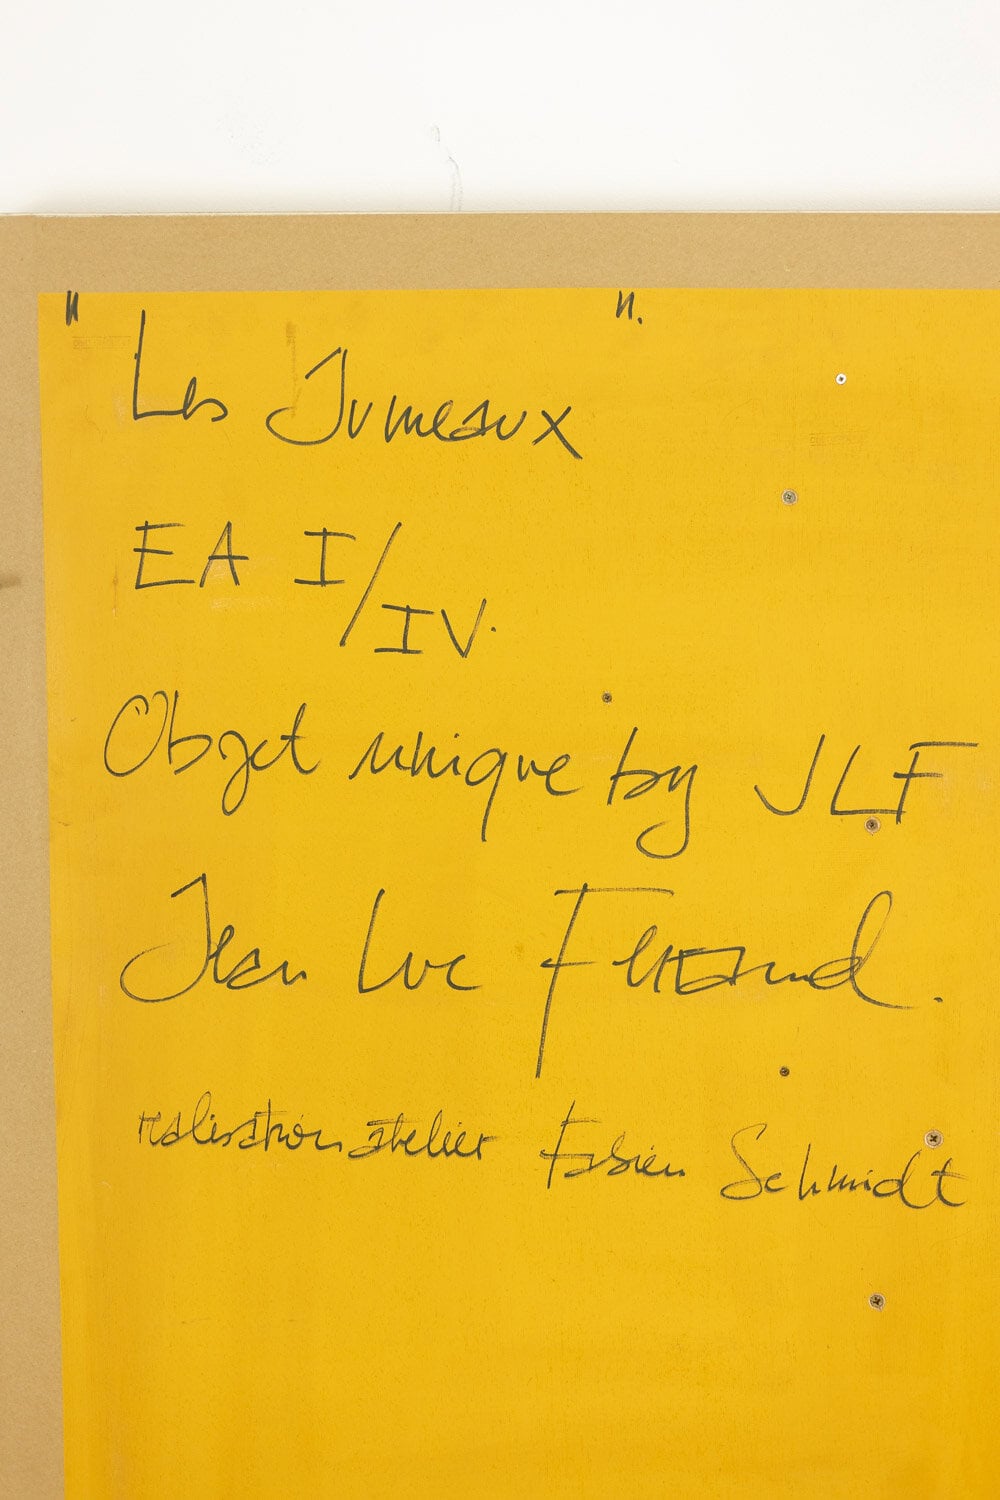 " Les Jumeaux ".
EA I/IV.
Objet unique by JLF
Jean Luc Ferrand.
realisation atelier Fabien Schmidt